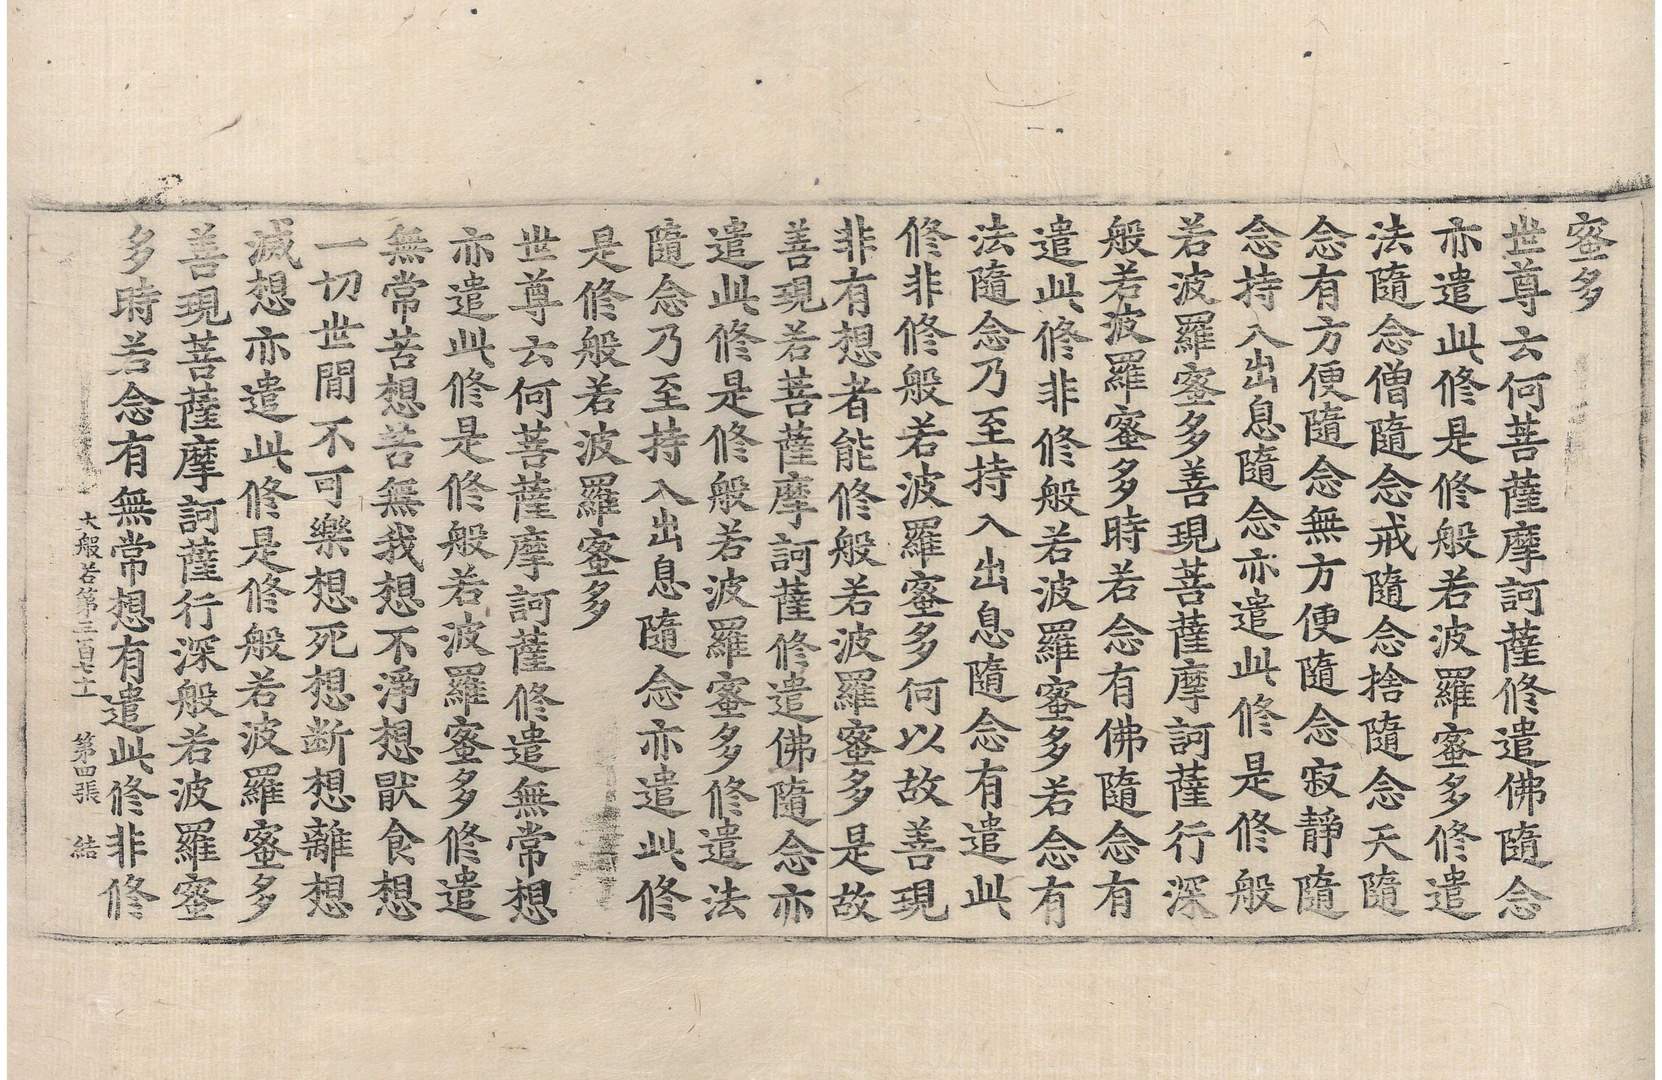 蜜多
世尊云何菩薩摩訶薩修遣佛隨念
亦遣此修是修般若波羅蜜多修遣
法隨念僧隨念戒隨念捨隨念天隨
念有方便隨念無方便隨念寂靜隨
念持入出息隨念亦遣此修是修般
若波羅蜜多善現菩薩摩訶薩行深
般若波羅蜜多時若念有佛隨念有
遣此修非修般若波羅蜜多若念有
法隨念乃至持入出息隨念有遣此
修非修般若波羅蜜多何以故善現
非有想者能修般若波羅蜜多是故
善現若菩薩摩訶薩修遣佛隨念亦
遣此修是修般若波羅蜜多修遣法
隨念乃至持入出息隨念亦遣此修
是修般若波羅蜜多
世尊云何菩薩摩訶薩修遣無常想
亦遣此修是修般若波羅蜜多修遣
無常苦想苦無我想不淨想猒食想
一切世間不可樂想死想断想離想
滅想亦遣此修是修般若波羅蜜多
善現菩薩摩訶薩行深般若波羅蜜
多時若念有無常想有遣此修非修
大般若第三百七十 第四張 結